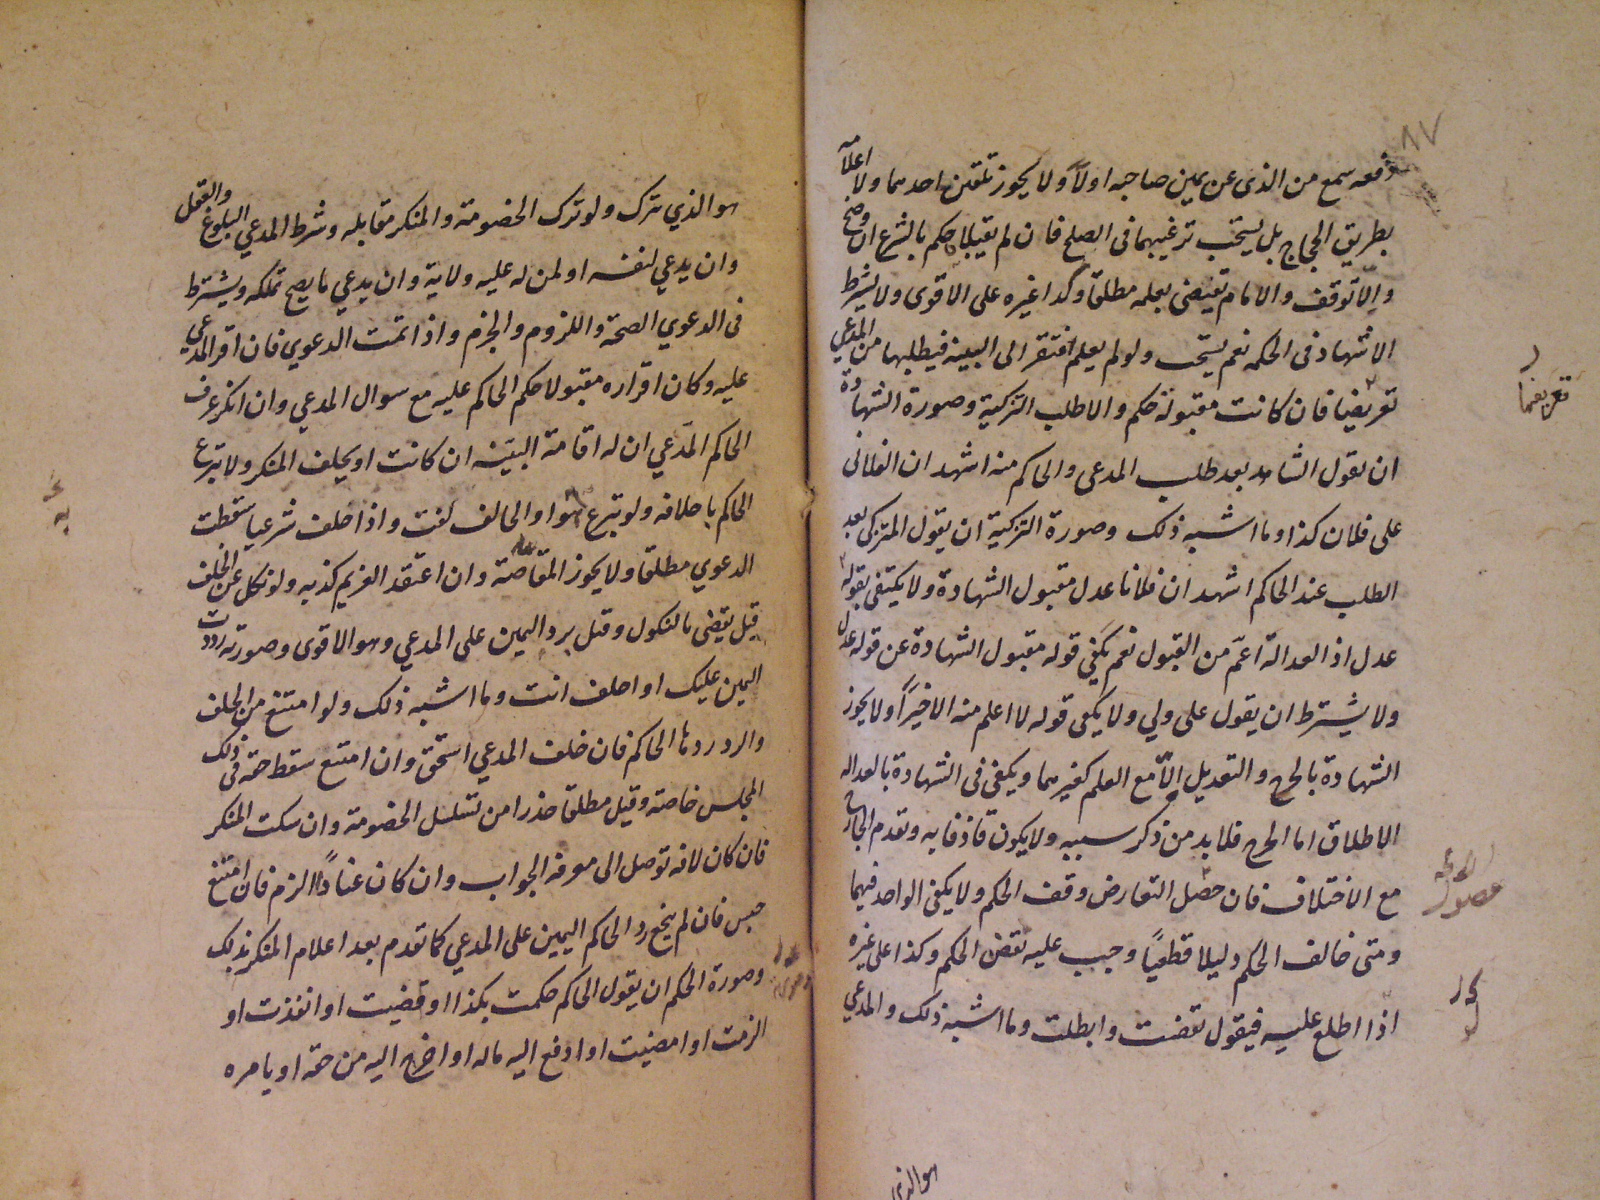 ٨٧
دفعه سمع من الذى عن يمين صاحبه اولاً ولا يجوز تلقين احدهما ولا اعلامه
بطريق الحجاج بل يستحب ترغيبهما فى الصلح فان لم يقبلا حكم بالشرع ان وضح
والّا توقف والامام يقضى بعلمه مطلقا وكذا غيره على الاقوى ولا يشترط
الاشهاد فى الحكم نعم يستحب ولو لم يعلم افتقر الى البينة فيطلبها من المدعي
تعريضا فان كانت مقبولة حكم والا طلب التزكية وصورة الشهادة
ان يقول الشاهد بعد طلب المدعى والحاكم منه اشهد ان الفلانى
على فلان كذا وما اشبه ذلك وصورة التزكية ان يقول المزكى بعد
الطلب عند الحاكم اشهد ان فلانا عدل مقبول الشهادة ولا يكتفى بقوله
عدل اذ العدالة اعمّ من القبول نعم يكفي قوله مقبول الشهادة عن قوله عدل
ولا يشترط ان يقول على ولي ولا يكفى قوله لا اعلم منه الا خيراً ولا يجوز
الشهادة بالجرح والتعديل الّا مع العلم كغيرهما ويكفى فى الشهادة بالعداله
الاطلاق اما الجرح فلا بد من ذكر سببه ولا يكون قاذفا به وتقدم الجارح
مع الاختلاف فان حصل التعارض وقف الحكم ولا يكفى الواحد فيهما
ومتى خالف الحكم دليلا قطعيًا وجب عليه نقض الحكم وكذا على غيره
اذا اطلع عليه فيقول نقضت وابطلت وما اشبه ذلك والمدعي
هو الذي
هو الذي يترك ولو ترك الخصومة والمنكر مقابله وشرط المدعي البلوغ والعقل
وان يدعي لنفسه او لمن له عليه ولاية وان يدعي ما يصح تملكه ويشترط
فى الدعوي الصحة واللزوم والجزم واذا تمت الدعوي فان اقر المدعي
عليه وكان اقراره مقبولا حكم الحاكم عليه مع سوال المدعي وان انكر عرف
الحاكم المدّعي ان له اقامة البيّنه ان كانت او يحلف المنكر ولا يتبرع
الحاكم باحلافه ولو تبرع هو او الحالف لغت واذا حلف شرعيا سقطت
الدعوي مطلقا ولا يجوز المقاصة وان اعتقد الغريم كذبه ولو نكل عن الحلف
قيل يقضى بالنكول وقيل يرد اليمين على المدعي وهو الاقوى وصورته رددت
اليمين عليك او احلف انت وما اشبه ذلك ولو امتنع من الحلف
والرد ردها الحاكم فان حلف المدعي استحق وان امتنع سقط حقه فى ذلك
المجلس خاصة وقيل مطلقا حذرا من تسلسل الخصومة وان سكت المنكر
فان كان لافه توصل الى معرفه الجواب وان كان عنادًا الزم فان امتنع
حبس فان لم ينجع رد الحاكم اليمين على المدعي كما تقدم بعد اعلام المنكر بذلك
وصورة الحكم ان يقول الحاكم حكمت بكذا او قضيت او انفذت او
الزمت او امضيت او ادفع اليه ماله او اخرج اليه من حقه او يامره